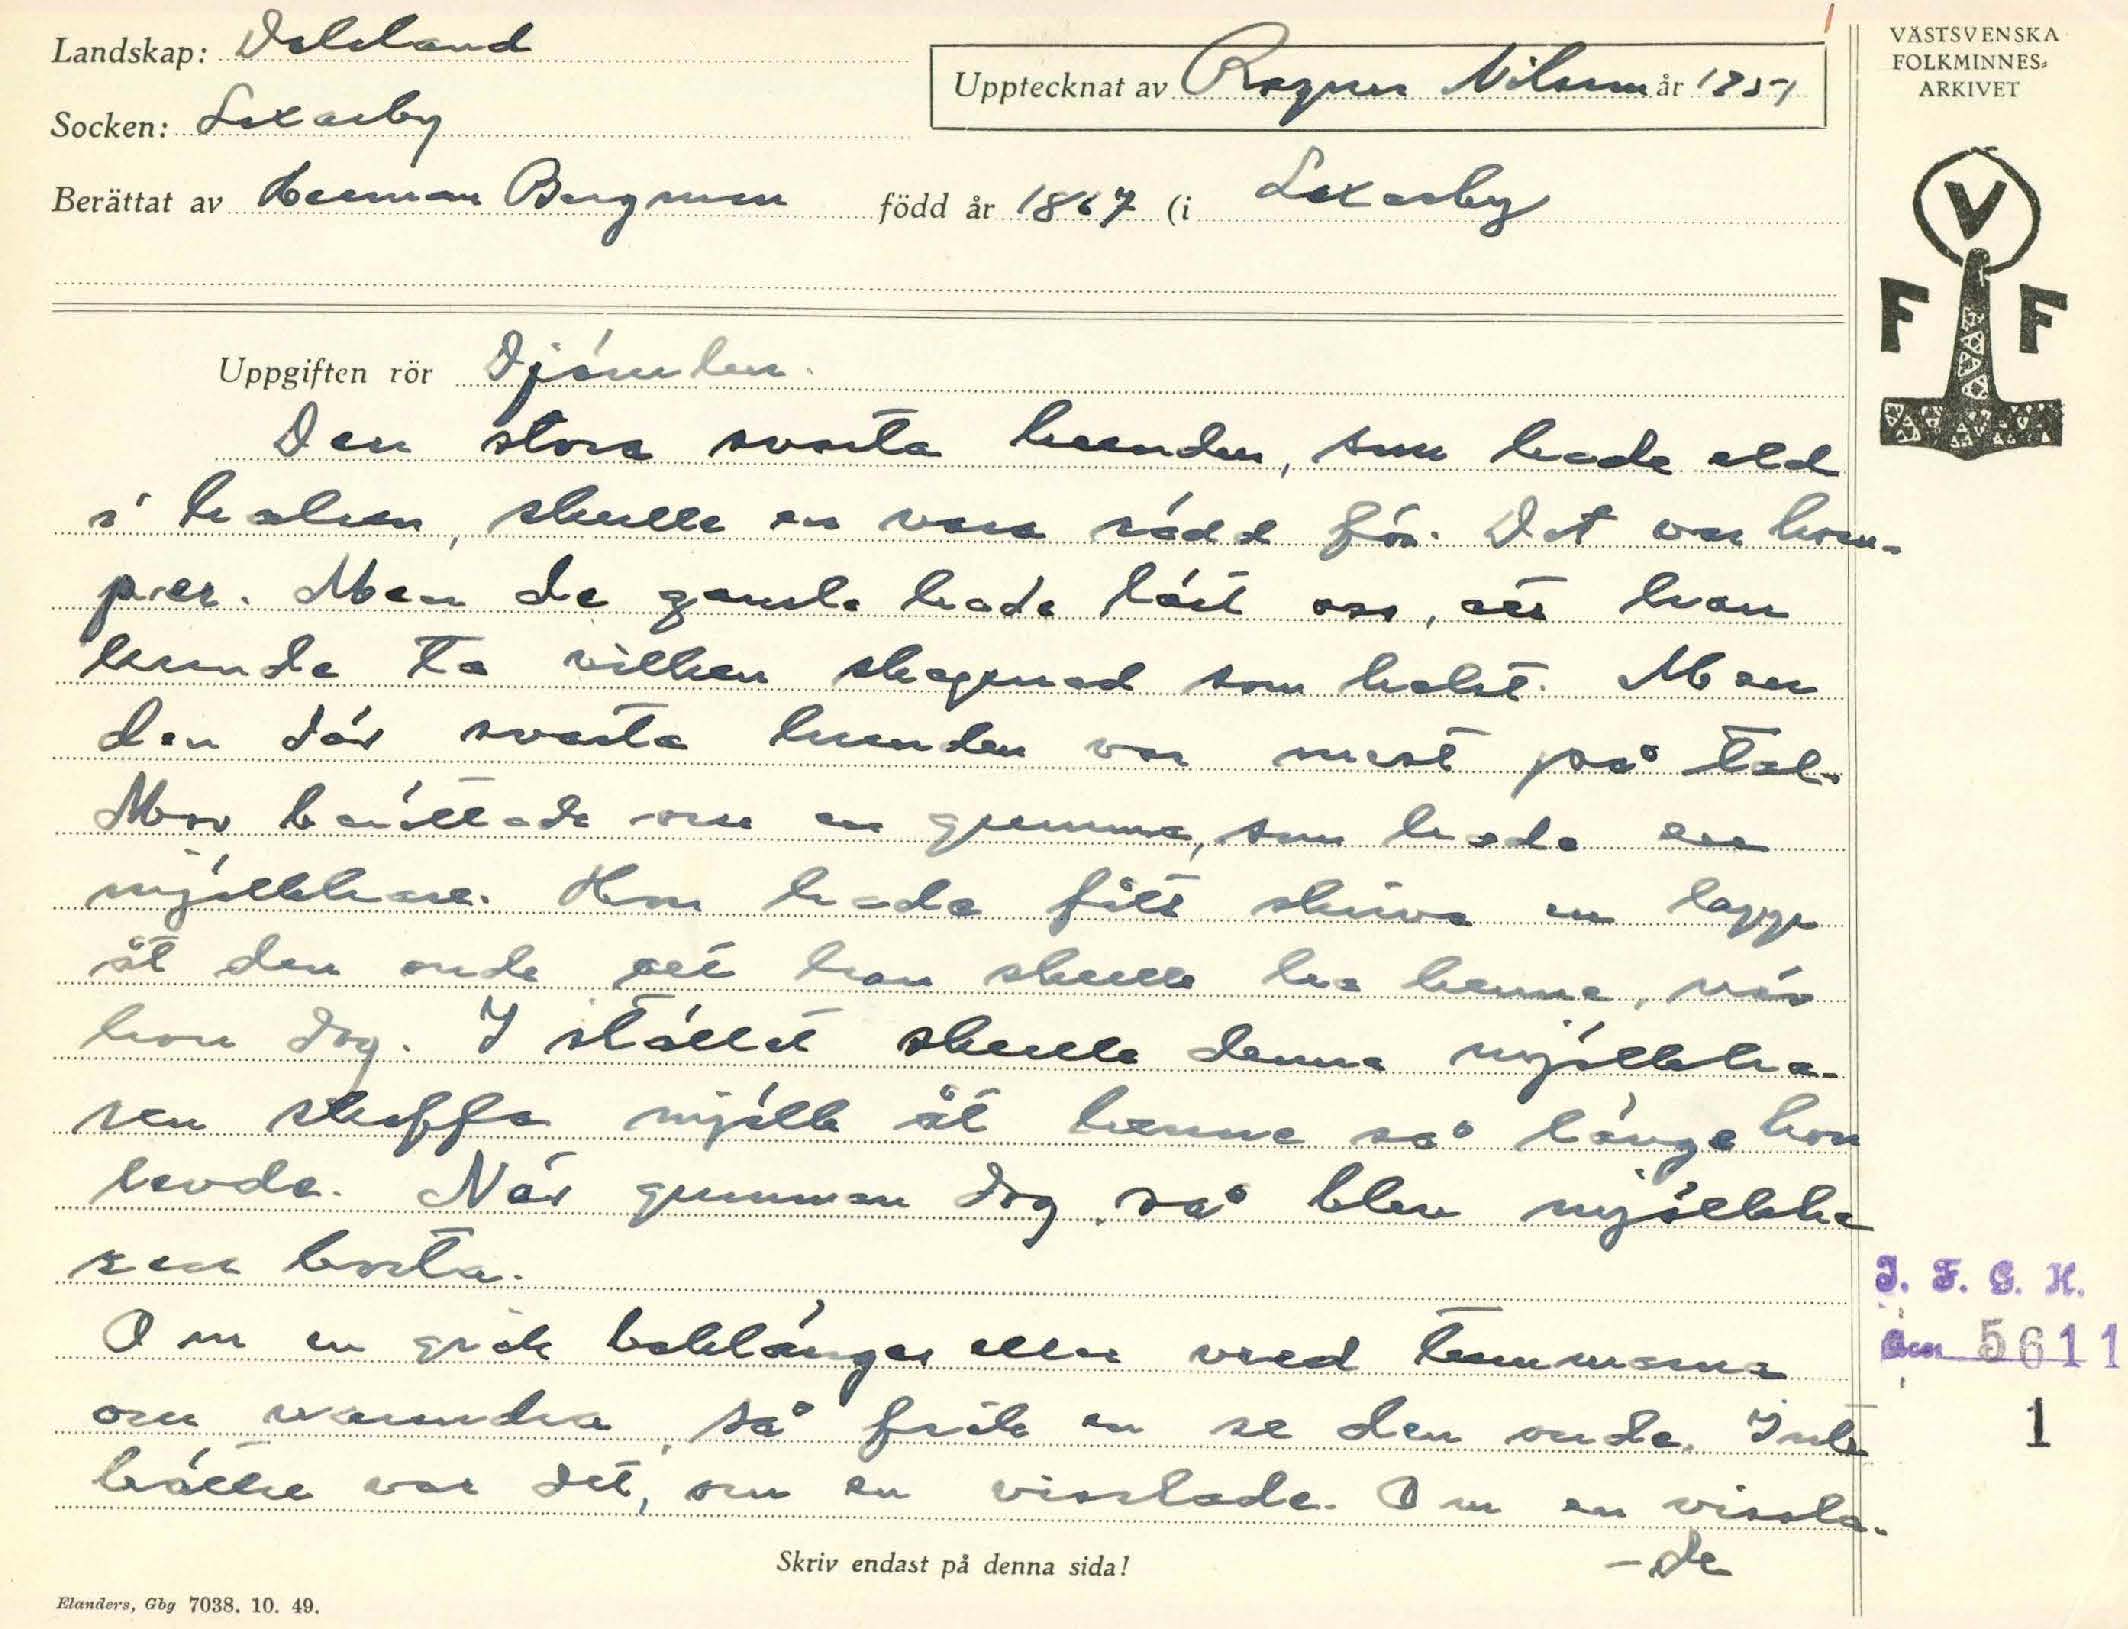 Landskap: Dalsland
Upptecknat av Ragnar Nilsson år 1951
Socken: Laxarby
Berättat av Herman Bergman född år 1867 (i Laxarby
VÄSTSVENSKA
FOLKMINNES-
ARKIVET
V
F F
Uppgiften rör Djävulen.
Den stora svarta hunden, som hade eld
i halsen, skulle en vara rädd för. Det var hom-
per. Men de gamla hade lärt oss, att han
kunde ta vilken skepnad som helst. Men
den där svarta hunden var mest på tal.
Mor berättade om en gumma, som hade en
mjölkhare. Hon hade fått skriva en lapp
åt den onde att han skulle ha henne, när
hon dog. I stället skulle denna mjölkha-
ren skaffa mjölk åt henne så länge hon
levde. När gumman dog, så blev mjölkha
ren borta.
Om en gick baklänges eller vred tummarna
om varandra, så fick en se den onde. Inte
bättre var det, om en visslade. Om en vissla-
-de
Skriv endast på denna sida!
Elanders, Gbg 7038. 10. 49.
I. F. G. H.
5611
1